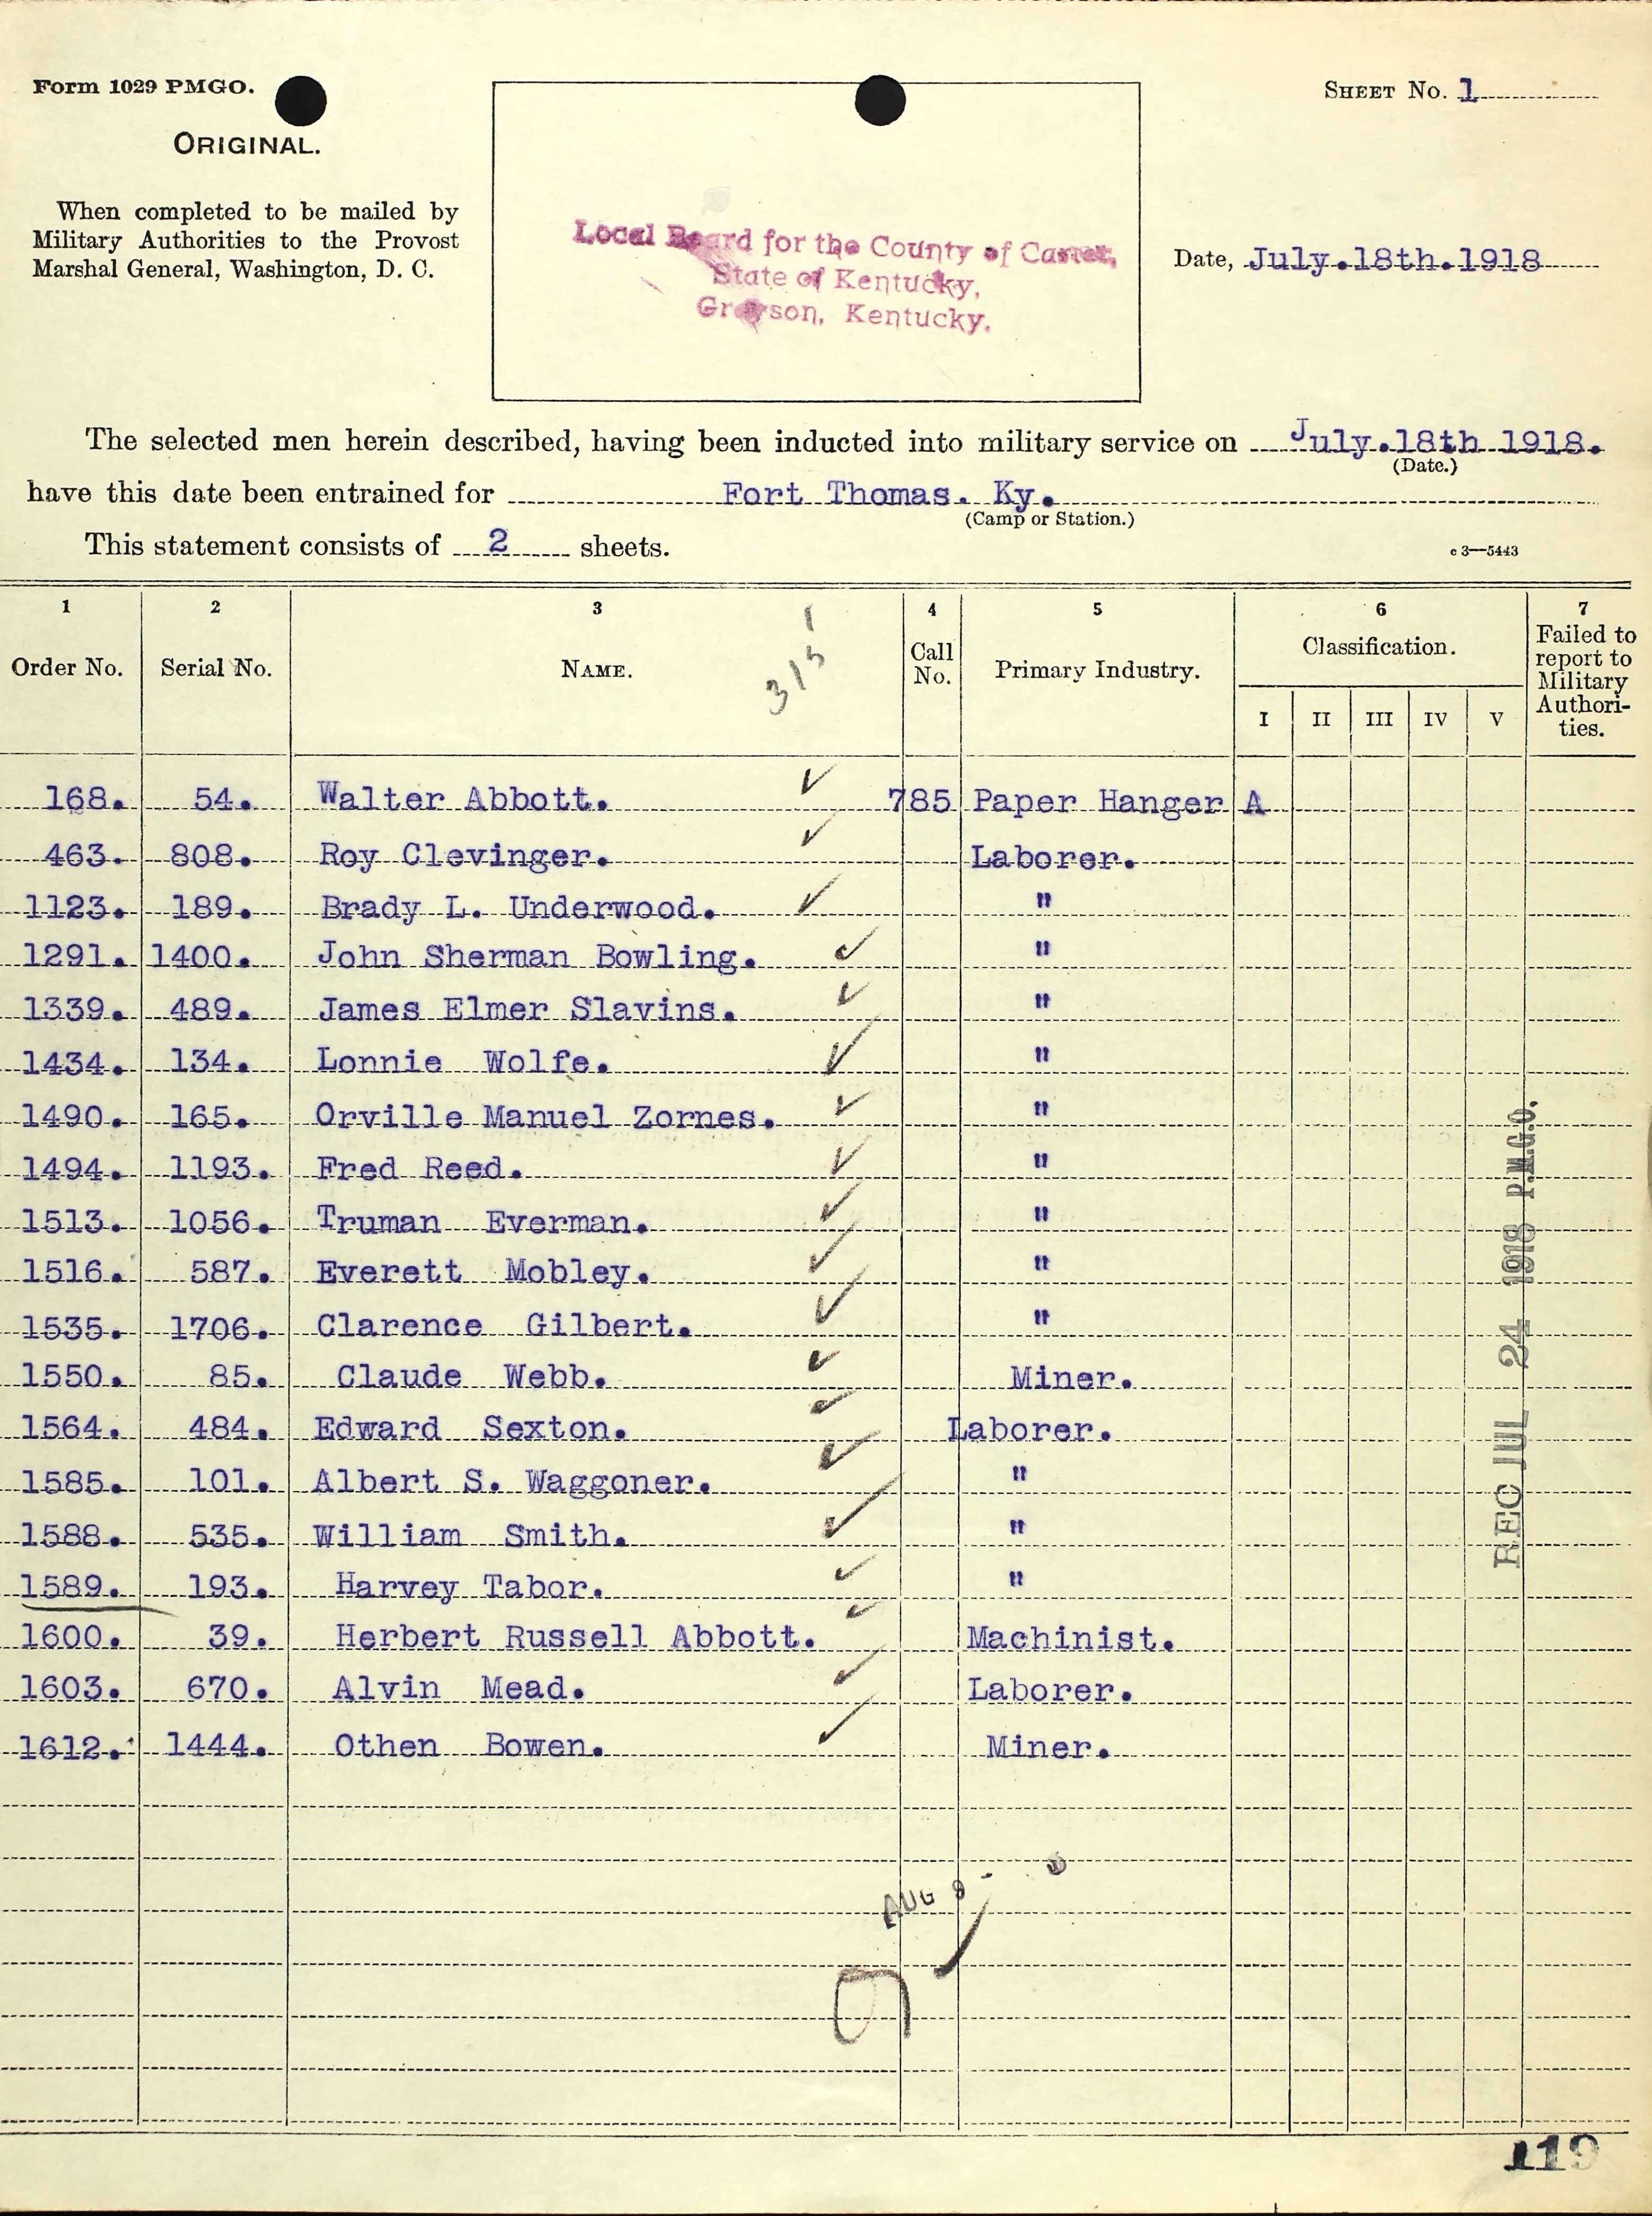 Form 1029 PMGO.
ORIGINAL.
When completed to be mailed by
Military Authorities to the Provost
Marshal General, Washington, D. C.
Local Board for the County of Carter,
State of Kentucky,
Grayson, Kentucky.
SHEET No. 1
Date, July.18th.1918
The selected men herein described, having been inducted into military service on July.18th 1918.
(Date.)
have this date been entrained for Fort Thomas. Ky.
(Camp or Station.)
This statement consists of 2 sheets.
c 3—5443
1 2 3 4 5 6 7
Order No. Serial No. NAME. Call No. Primary Industry. Classification. Failed to report to Military Authori- ties.
315 1
I II III IV V
168. 54. Walter Abbott. 785 Paper Hanger A
463. 808. Roy Clevinger. Laborer.
1123. 189. Brady L. Underwood. "
1291. 1400. John Sherman Bowling. "
1339. 489. James Elmer Slavins. "
1434. 134. Lonnie Wolfe. "
1490. 165. Orville Manuel Zornes. "
1494. 1193. Fred Reed. "
1513. 1056. Truman Everman. "
1516. 587. Everett Mobley. "
1535. 1706. Clarence Gilbert. "
1550. 85. Claude Webb. Miner.
1564. 484. Edward Sexton. Laborer.
1585. 101. Albert S. Waggoner. "
1588. 535. William Smith. "
1589. 193. Harvey Tabor. "
1600. 39. Herbert Russell Abbott. Machinist.
1603. 670. Alvin Mead. Laborer.
1612. 1444. Othen Bowen. Miner.
REC JUL 24 1918 P.M.G.O.
AUG 8
119